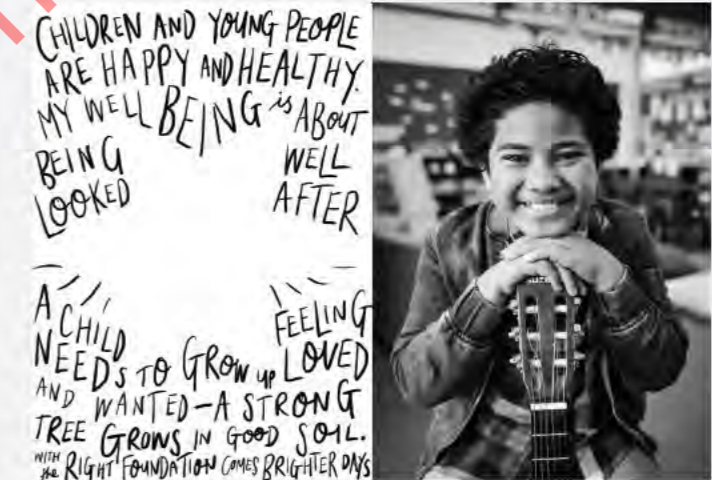 CHILDREN AND YOUNG PEOPLE
ARE HAPPY AND HEALTHY.
MY WELLBEING is ABOUT
BEING WELL
LOOKED AFTER
A CHILD FEELING
NEEDS TO GROW up LOVED
AND WANTED—A STRONG
TREE GROWS IN GOOD SOIL.
WITH the RIGHT FOUNDATION COMES BRIGHTER DAYS